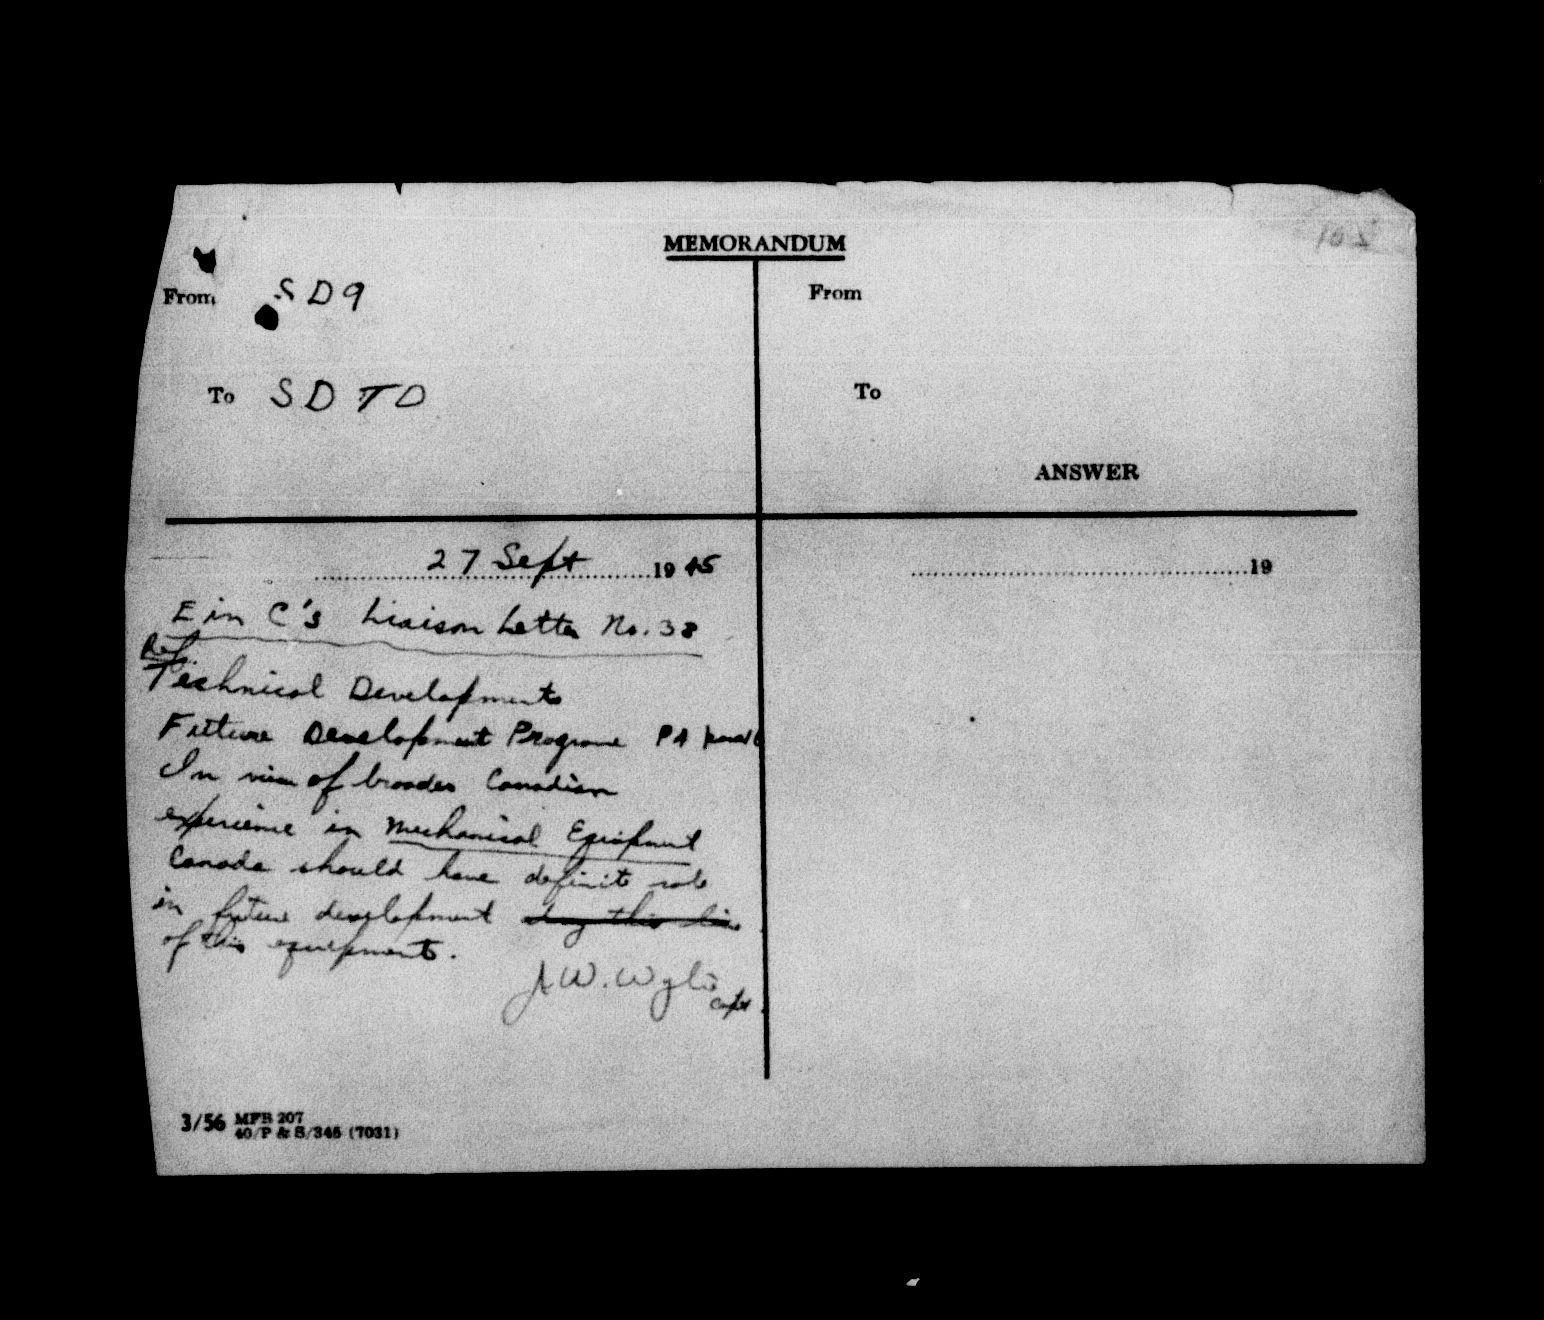 MEMORANDUM
From SD9
To SDTD
27 Sept 1945
E in C's Liaison Letter No. 38
Ref
Technical Developments
Future Development Programe PA
In view of broader Canadian
experience in Mechanical Equipment
Canada should have definite role
in future development along this line
of this equipments.
J.W. Wylie
Capt.
From
To
ANSWER
19
3/56 MFB 207
40/P & S/345 (7031)